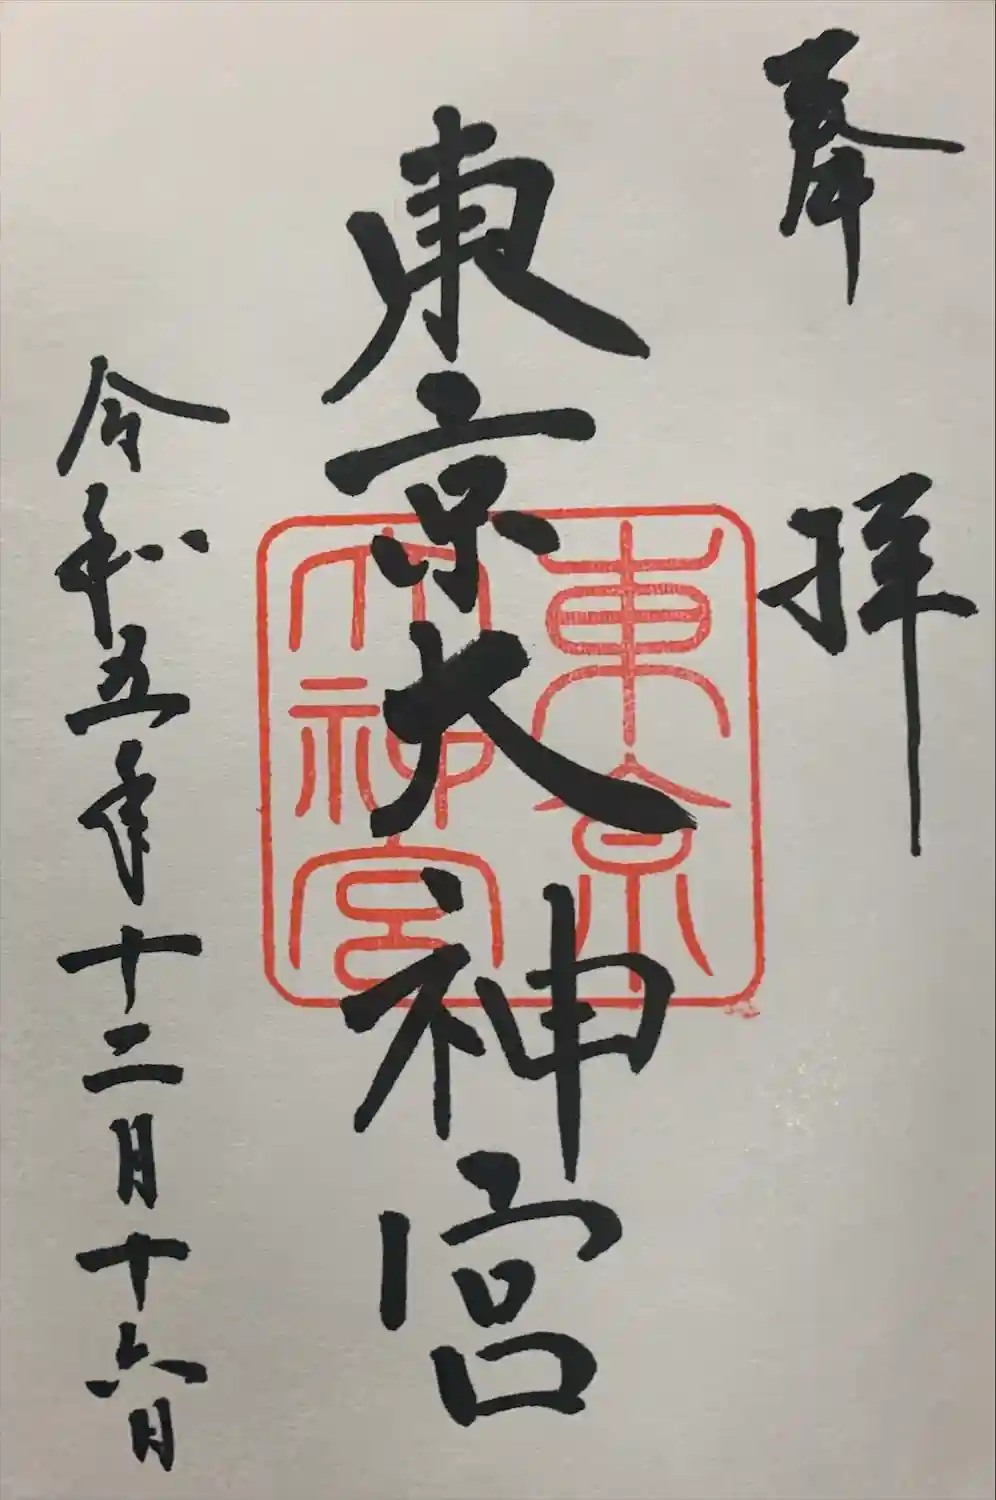 奉拝
東京大神宮
東京
大神宮
令和五年十二月十六日